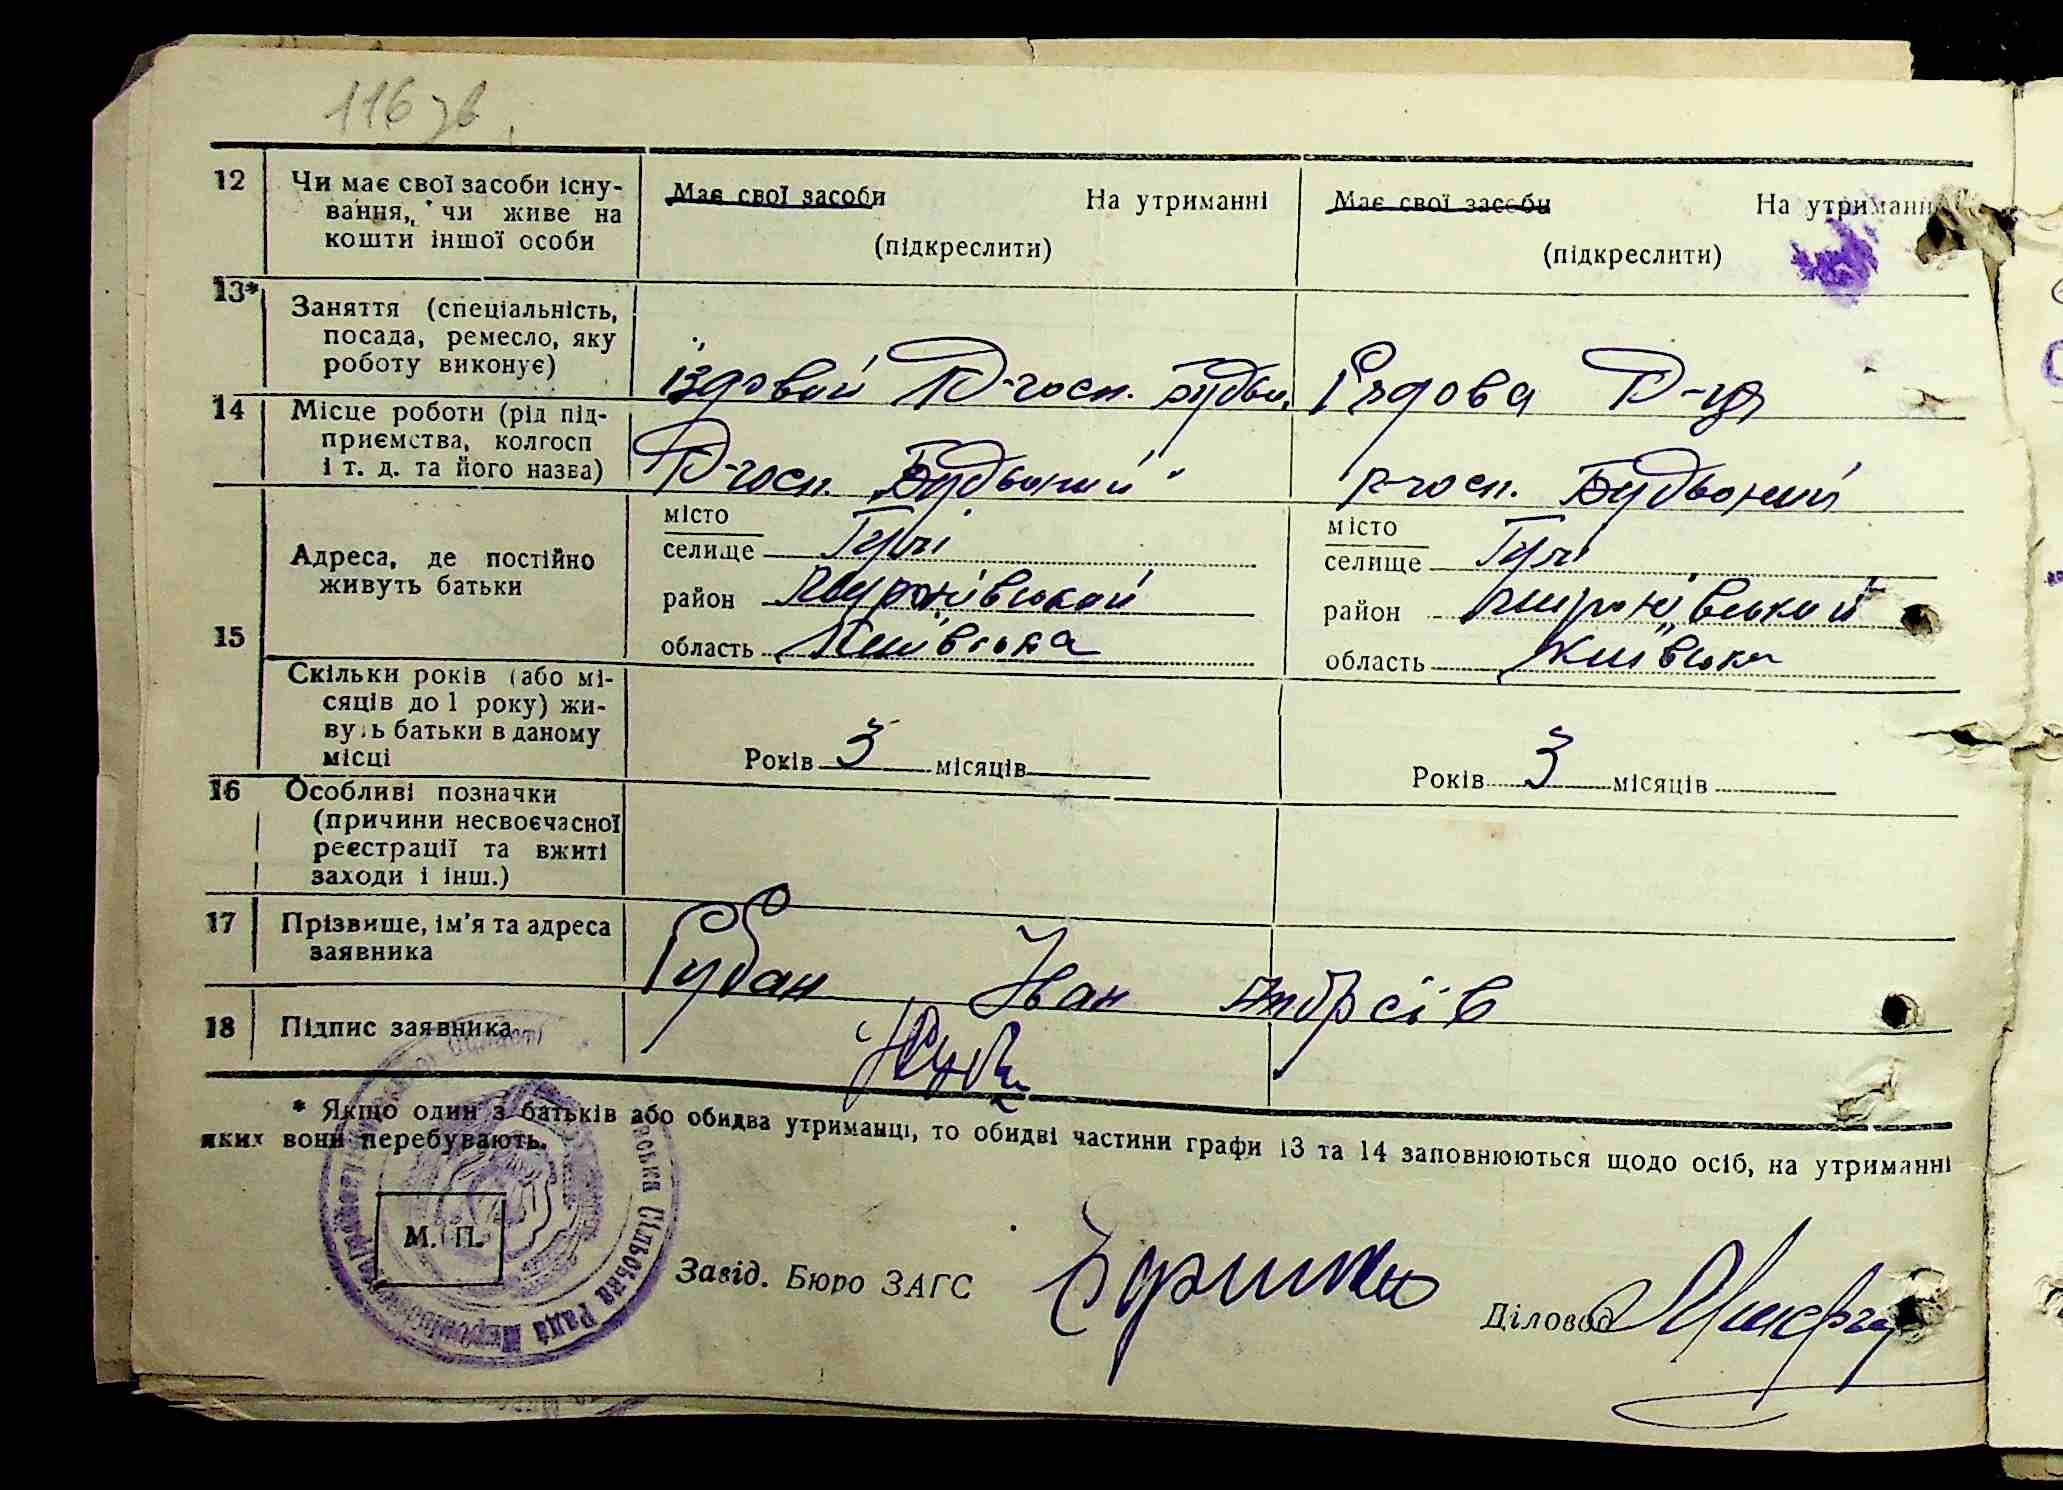 116 зв
12 Чи має свої засоби існу- Має свої засоби На утриманні Має свої засоби На утриманні
вання, чи живе на
кошти іншої особи (підкреслити) (підкреслити)
13* Заняття (спеціальність,
посада, ремесло, яку
роботу виконує) їздовий Р-госп. Рядова Р-ця
14 Місце роботи (рід під-
приємства, колгосп
і т. д. та його назва) Р-госп. Р-госп.
15 Адреса, де постійно
живуть батьки
місто місто
селище селище
район Миронівський район Миронівський
область Київська область Київська
15 Скільки років (або мі-
сяців до 1 року) жи-
вуть батьки в даному
місці Років 3 місяців Років 3 місяців
16 Особливі позначки
(причини несвоєчасної
реєстрації та вжиті
заходи і інш.)
17 Прізвище, ім'я та адреса
заявника Губан Іван Андреїв
18 Підпис заявника
* Якщо один з батьків або обидва утриманці, то обидві частини графи 13 та 14 заповнюються щодо осіб, на утриманні
яких вони перебувають.
М. П.
Сільська Рада
Завід. Бюро ЗАГС
Діловод